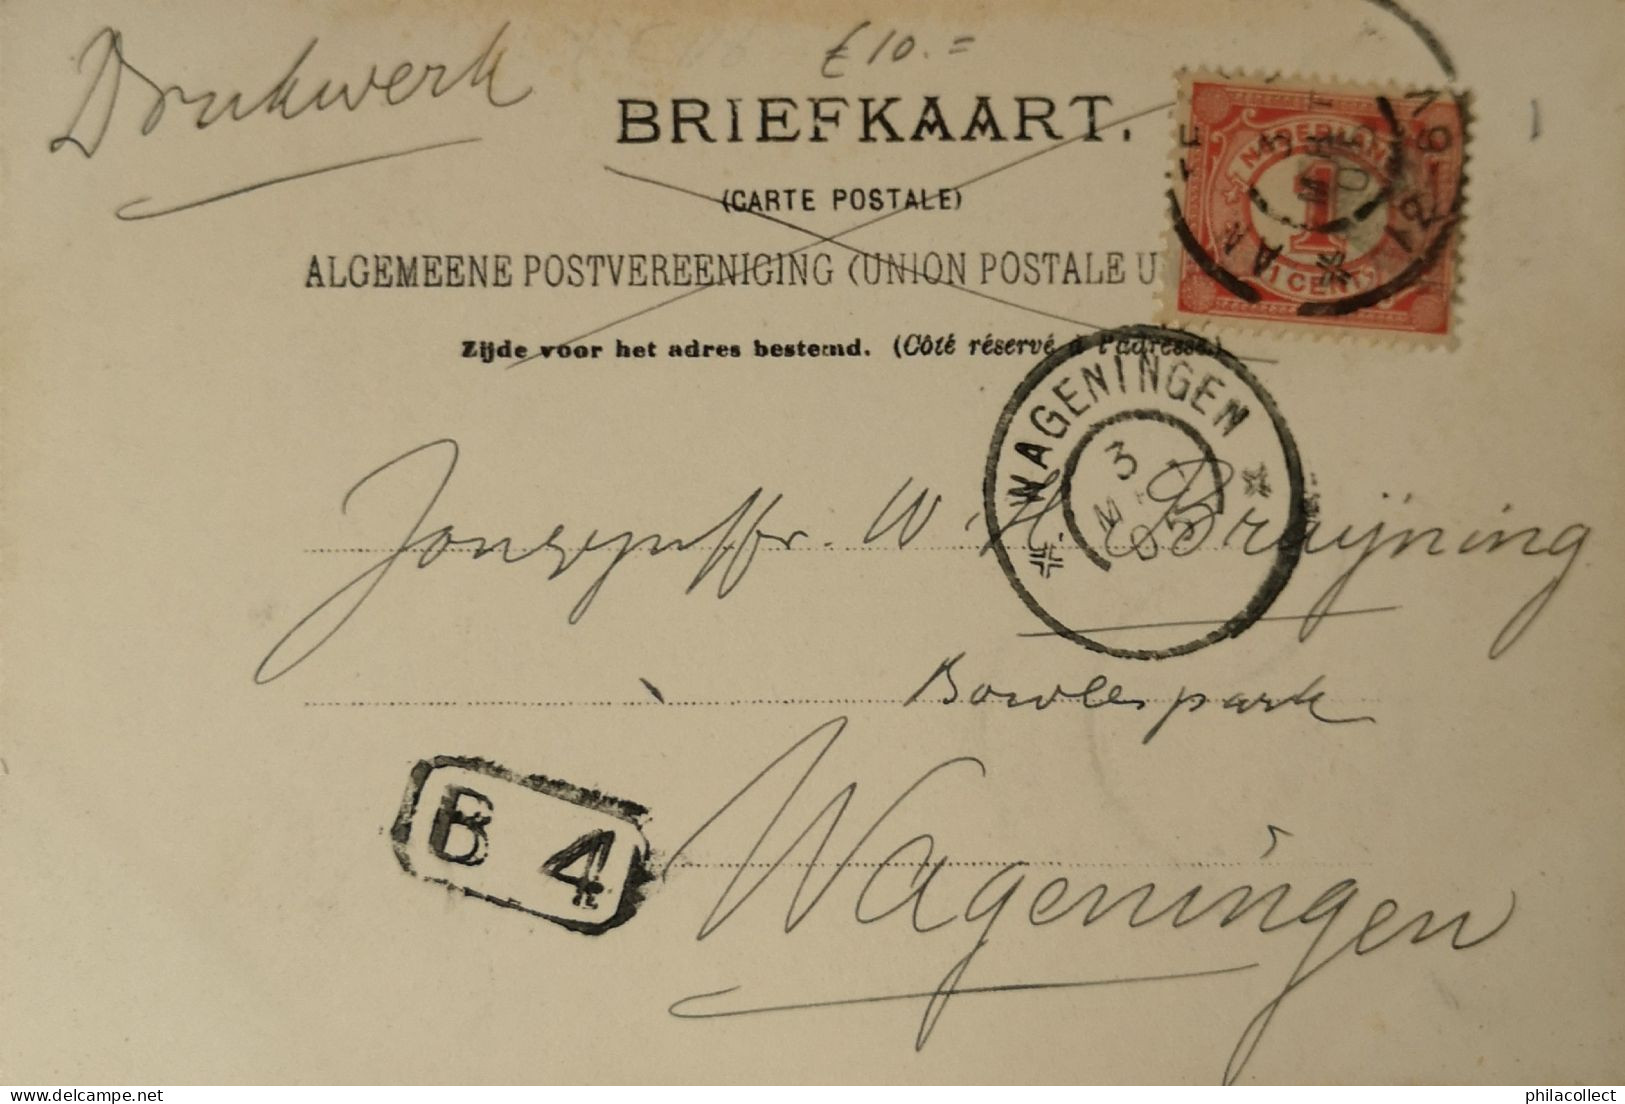 Drukwerk
£ 10.=
BRIEFKAART.
(CARTE POSTALE)
ALGEMEENE POSTVEREENIGING (UNION POSTALE U
Zijde voor het adres bestemd. (Côté réservé à l'adresse.)
NEDERLAND
1
1 CENT
WAGENINGEN
3
05
Jongejuffr. W. H. Bruijning
Bowlespark
B 4
Wageningen
philacollect
delcampe.net